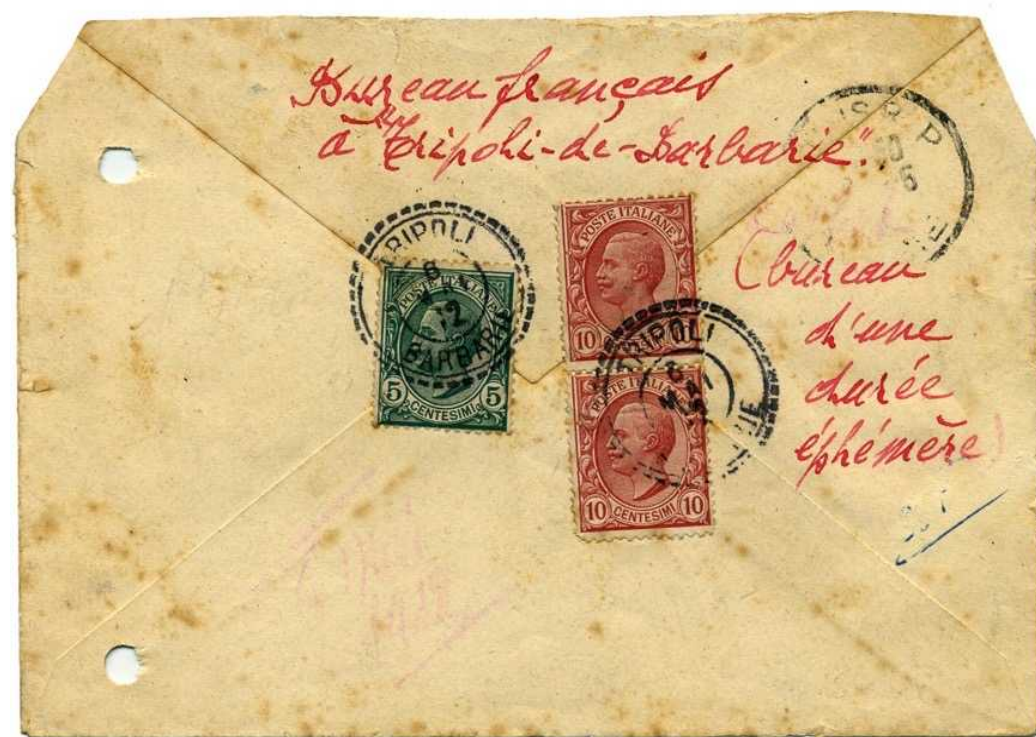 Bureau français
à "Tripoli-de-Barbarie".
(bureau
d'une
durée
éphémère)
TRIPOLI
8
12
BARBARIE
POSTE ITALIANE
5 CENTESIMI 5
POSTE ITALIANE
10
TRIPOLI
8
POSTE ITALIANE
10 CENTESIMI 10
R.P